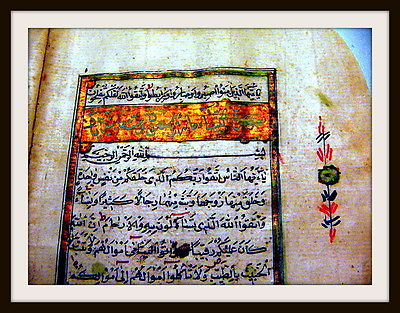 يَا أَيُّهَا الَّذِينَ آمَنُوا اصْبِرُوا وَصَابِرُوا وَرَابِطُوا وَاتَّقُوا اللَّهَ لَعَلَّكُمْ تُفْلِحُونَ
بِسْمِ اللَّهِ الرَّحْمَنِ الرَّحِيمِ
يَا أَيُّهَا النَّاسُ اتَّقُوا رَبَّكُمُ الَّذِي خَلَقَكُمْ مِنْ نَفْسٍ وَاحِدَةٍ
وَخَلَقَ مِنْهَا زَوْجَهَا وَبَثَّ مِنْهُمَا رِجَالًا كَثِيرًا وَنِسَاءً
وَاتَّقُوا اللَّهَ الَّذِي تَسَاءَلُونَ بِهِ وَالْأَرْحَامَ إِنَّ اللَّهَ
كَانَ عَلَيْكُمْ رَقِيبًا وَآتُوا الْيَتَامَى أَمْوَالَهُمْ وَلَا
الْخَبِيثَ بِالطَّيِّبِ وَلَا تَأْكُلُوا أَمْوَالَهُمْ إِلَى أَمْوَالِكُمْ